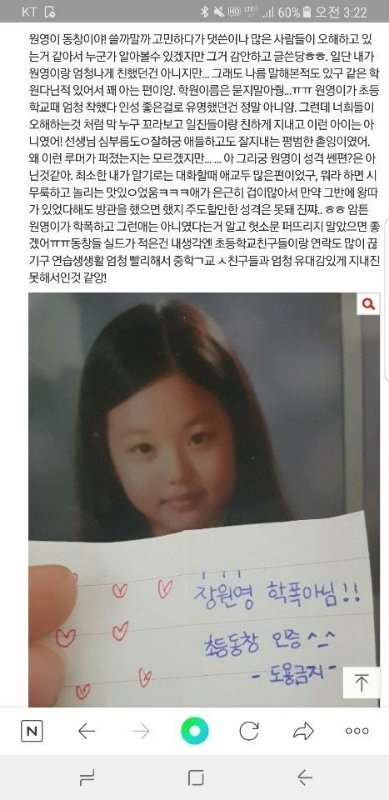 KT
LTE
60%
오전 3:22
원영이 동창이야! 쓸까말까 고민하다가 댓쓴이나 많은 사람들이 오해하고 있
는거 같아서 누군가 알아볼수 있겠지만 그거 감안하고 글쓴당ㅎㅎ. 일단 내가
원영이랑 엄청나게 친했던건 아니지만... 그래도 나름 말해본적도 있구 같은 학
원다닌적 있어서 꽤 아는 편이양. 학원이름은 묻지말아줘...ㅠㅠ 원영이가 초등
학교때 엄청 착했다 인성 좋은걸로 유명했던건 정말 아니얌. 그런데 너희들이
오해하는것 처럼 막 누구 꼬라보고 일진들이랑 친하게 지내고 이런 아이는 아
니였어! 선생님 심부름도ㅇ잘하궁 애들하고도 잘지내는 평범한 춛잉이였어.
왜 이런 루머가 퍼졌는지는 모르겠지만... ... 아 그리궁 원영이 성격 쎈편?은 아
닌것같아. 최소한 내가 알기로는 대화할때 애교두 많은편이었구, 뭐라 하면 시
무룩하고 놀리는 맛있ㅇ었움ㅋㅋㅋ애가 은근히 겁이많아서 만약 그반에 왕따
가 있었다해도 방관을 했으면 했지 주도할만한 성격은 못돼 진쨔.. ㅎㅎ 암튼
원영이가 학폭하고 그런애는 아니였다는거 알고 헛소문 퍼뜨리지 말았으면 좋
겠어ㅠㅠ동창들 실드가 적은건 내생각엔 초등학교친구들이랑 연락도 많이 끊
기구 연습생생활 엄청 빨리해서 중학ㄱ교 ㅅ친구들과 엄청 유대감있게 지내진
못해서인것 같앙!
장원영 학폭아님!!
초등동창 인증^_^
- 도용금지 -
N